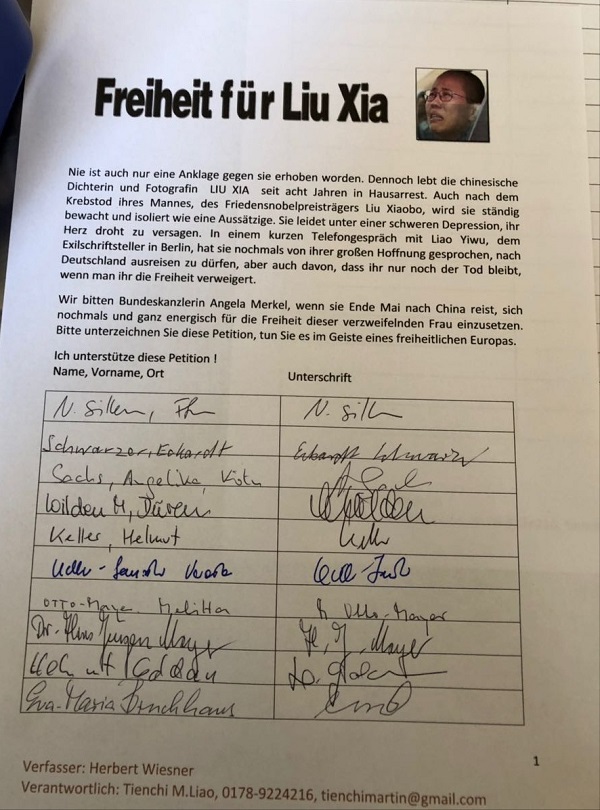 Freiheit für Liu Xia
Nie ist auch nur eine Anklage gegen sie erhoben worden. Dennoch lebt die chinesische
Dichterin und Fotografin LIU XIA seit acht Jahren in Hausarrest. Auch nach dem
Krebstod ihres Mannes, des Friedensnobelpreisträgers Liu Xiaobo, wird sie ständig
bewacht und isoliert wie eine Aussätzige. Sie leidet unter einer schweren Depression, ihr
Herz droht zu versagen. In einem kurzen Telefongespräch mit Liao Yiwu, dem
Exilschriftsteller in Berlin, hat sie nochmals von ihrer großen Hoffnung gesprochen, nach
Deutschland ausreisen zu dürfen, aber auch davon, dass ihr nur noch der Tod bleibt,
wenn man ihr die Freiheit verweigert.
Wir bitten Bundeskanzlerin Angela Merkel, wenn sie Ende Mai nach China reist, sich
nochmals und ganz energisch für die Freiheit dieser verzweifelnden Frau einzusetzen.
Bitte unterzeichnen Sie diese Petition, tun Sie es im Geiste eines freiheitlichen Europas.
Ich unterstütze diese Petition !
Name, Vorname, Ort Unterschrift
N. N.
Schwarzer, Eckhardt
Sachs, Angelika, Köln
Wilden M, Düren
Keller, Helmut
Otto-Mayer Melitta Otto-Mayer
Dr. Hans Jürgen Mayer H. J. Mayer
Helmut
Eva-Maria
1
Verfasser: Herbert Wiesner
Verantwortlich: Tienchi M.Liao, 0178-9224216, tienchimartin@gmail.com